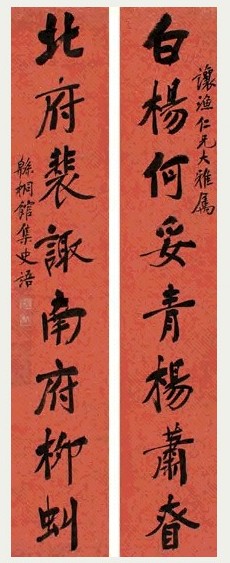 讓漁仁兄大雅屬
白楊何妥青楊蕭眘
北府裴諏南府柳虯
緜桐館集史語